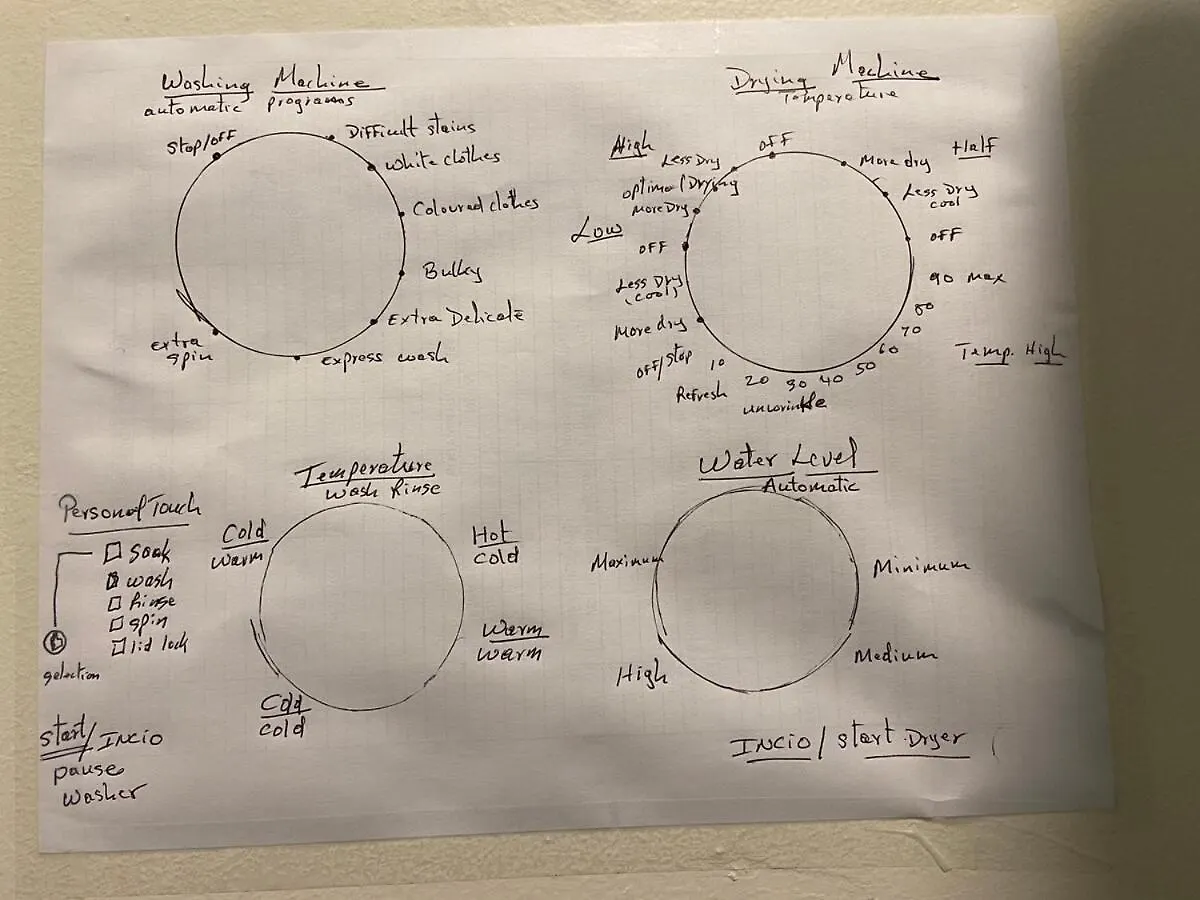 Washing Machine
automatic programs
Stop/OFF
Difficult stains
White clothes
Coloured clothes
Bulky
Extra Delicate
Express wash
extra
spin
Drying Machine
Temperature
High
Less Dry
Optimal Drying
More Dry
Low
OFF
Less Dry
(cool)
More dry
OFF/Stop
OFF
More dry
Half
Less Dry
cool
OFF
90 Max
80
70
60
50
40
30
20
10
Refresh
unwrinkle
Temp. High
Temperature
Wash Rinse
Cold
Warm
Hot
Cold
Warm
Warm
Cold
Cold
Water Level
Automatic
Maximum
Minimum
Medium
High
Personal Touch
Soak
wash
Rinse
spin
lid lock
selection
Start/INCIO
pause
washer
INCIO/Start Dryer